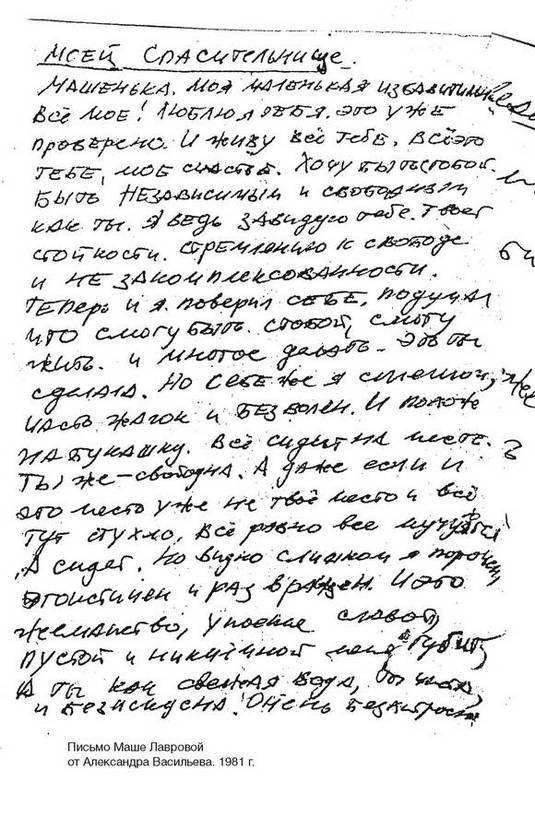 МОЕЙ СПАСИТЕЛЬНИЦЕ.
МАШЕНЬКА. МОЯ МАЛЕНЬКАЯ
ВСЁ МОЕ! ЛЮБЛЮ Я ТЕБЯ. ЭТО УЖЕ
ПРОВЕРЕНО. И ЖИВУ ВСЁ ТЕБЕ, ВСЁ ЭТО
ТЕБЕ, МОЕ СЧАСТЬЕ. ХОЧУ БЫТЬ С ТОБОЙ.
БЫТЬ НЕЗАВИСИМЫМ И СВОБОДНЫМ
КАК ТЫ. Я ВЕДЬ ЗАВИДУЮ ТЕБЕ. ТВОЕЙ
СТОЙКОСТИ. СТРЕМЛЕНИЮ К СВОБОДЕ
И НЕ ЗАКОМПЛЕКСОВАННОСТИ.
ТЕПЕРЬ И Я ПОВЕРИЛ СЕБЕ, ПОДУМАЛ
ЧТО СМОГУ БЫТЬ С ТОБОЙ, СМОГУ
ЖИТЬ. И МНОГОЕ ДЕЛАТЬ - ЭТО ТЫ
СДЕЛАЛА. НО СЕБЕ ЖЕ Я СМЕШОН,
ЧАСТЬ ЖАЛОК И БЕЗВОЛЕН. И ПОХОЖ
НА БУКАШКУ. ВСЁ СИДИТ НА МЕСТЕ.
ТЫ ЖЕ - СВОБОДНА. А ДАЖЕ ЕСЛИ И
ЭТО МЕСТО УЖЕ НЕ ТВОЁ МЕСТО И ВСЁ
ТУТ СТУХЛО, ВСЁ РОВНО ВСЕ МУЧАЕТСЯ
А СИДЕТ. НО ВИДНО СЛИШКОМ Я ПОРОЧЕН,
ЭГОИСТИЧЕН И РАЗВРАЩЕН. И ЭТО
ЖЕМАНСТВО, УПОЕНИЕ СЛАВОЙ,
ПУСТОЙ И НИКЧЁМНОЙ МЕНЯ ГУБИТ,
А ТЫ КАК СВЕЖАЯ ВОДА, ТЫ ЧИСТА,
И БЕЗИСКУСНА! ОЧЕНЬ
Письмо Маше Лавровой
от Александра Васильева. 1981 г.